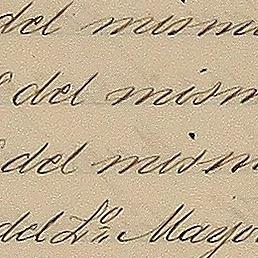 del mism
del mism
del mism
del Lo Mayor